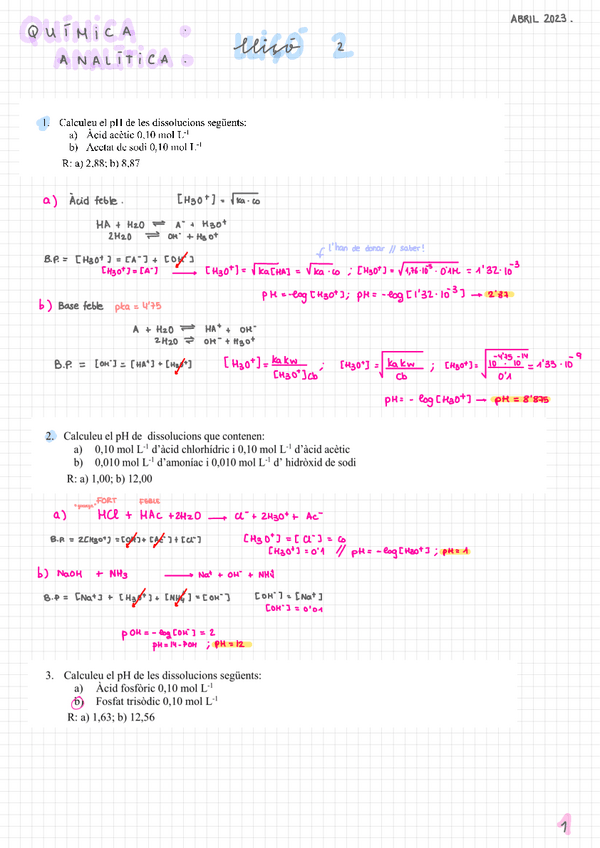 ABRIL 2023.
QUÍMICA
ANALÍTICA
lliçó 2
1. Calculeu el pH de les dissolucions següents:
a) Àcid acètic 0,10 mol L⁻¹
b) Acetat de sodi 0,10 mol L⁻¹
R: a) 2,88; b) 8,87
a) Àcid feble. [H3O⁺] = √ka·co
HA + H2O ⇌ A⁻ + H3O⁺
2H2O ⇌ OH⁻ + H3O⁺
l'han de donar // saber!
B.P. = [H3O⁺] = [A⁻] + [OH⁻]
[H3O⁺] = [A⁻] → [H3O⁺] = √ka[HA] = √ka·co ; [H3O⁺] = √1,76·10⁻⁵ · 0'1M = 1'32·10⁻³
pH = -log[H3O⁺]; pH = -log[1'32·10⁻³] → 2'87
b) Base feble pka = 4'75
A + H2O ⇌ HA⁺ + OH⁻
2H2O ⇌ OH⁻ + H3O⁺
B.P. = [OH⁻] = [HA⁺] + [H3O⁺] [H3O⁺] = ka kw / [H3O⁺]cb ; [H3O⁺] = √ka kw / cb ; [H3O⁺] = √10⁻⁴'⁷⁵ · 10⁻¹⁴ / 0'1 = 1'33·10⁻⁹
pH = -log[H3O⁺] → pH = 8'875
2. Calculeu el pH de dissolucions que contenen:
a) 0,10 mol L⁻¹ d'àcid clorhídric i 0,10 mol L⁻¹ d'àcid acètic
b) 0,010 mol L⁻¹ d'amoníac i 0,010 mol L⁻¹ d' hidròxid de sodi
R: a) 1,00; b) 12,00
FORT FEBLE
a) HCl + HAc + 2H2O → Cl⁻ + 2H3O⁺ + Ac⁻
B.P. = 2[H3O⁺] = [OH⁻] + [Ac⁻] + [Cl⁻] [H3O⁺] = [Cl⁻] = co
[H3O⁺] = 0'1 // pH = -log[H3O⁺] ; pH = 1
b) NaOH + NH3 → Na⁺ + OH⁻ + NH4⁺
B.P = [Na⁺] + [H3O⁺] + [NH4⁺] = [OH⁻] [OH⁻] = [Na⁺]
[OH⁻] = 0'01
pOH = -log[OH⁻] = 2
pH = 14 - pOH ; pH = 12
3. Calculeu el pH de les dissolucions següents:
a) Àcid fosfòric 0,10 mol L⁻¹
b) Fosfat trisòdic 0,10 mol L⁻¹
R: a) 1,63; b) 12,56
1